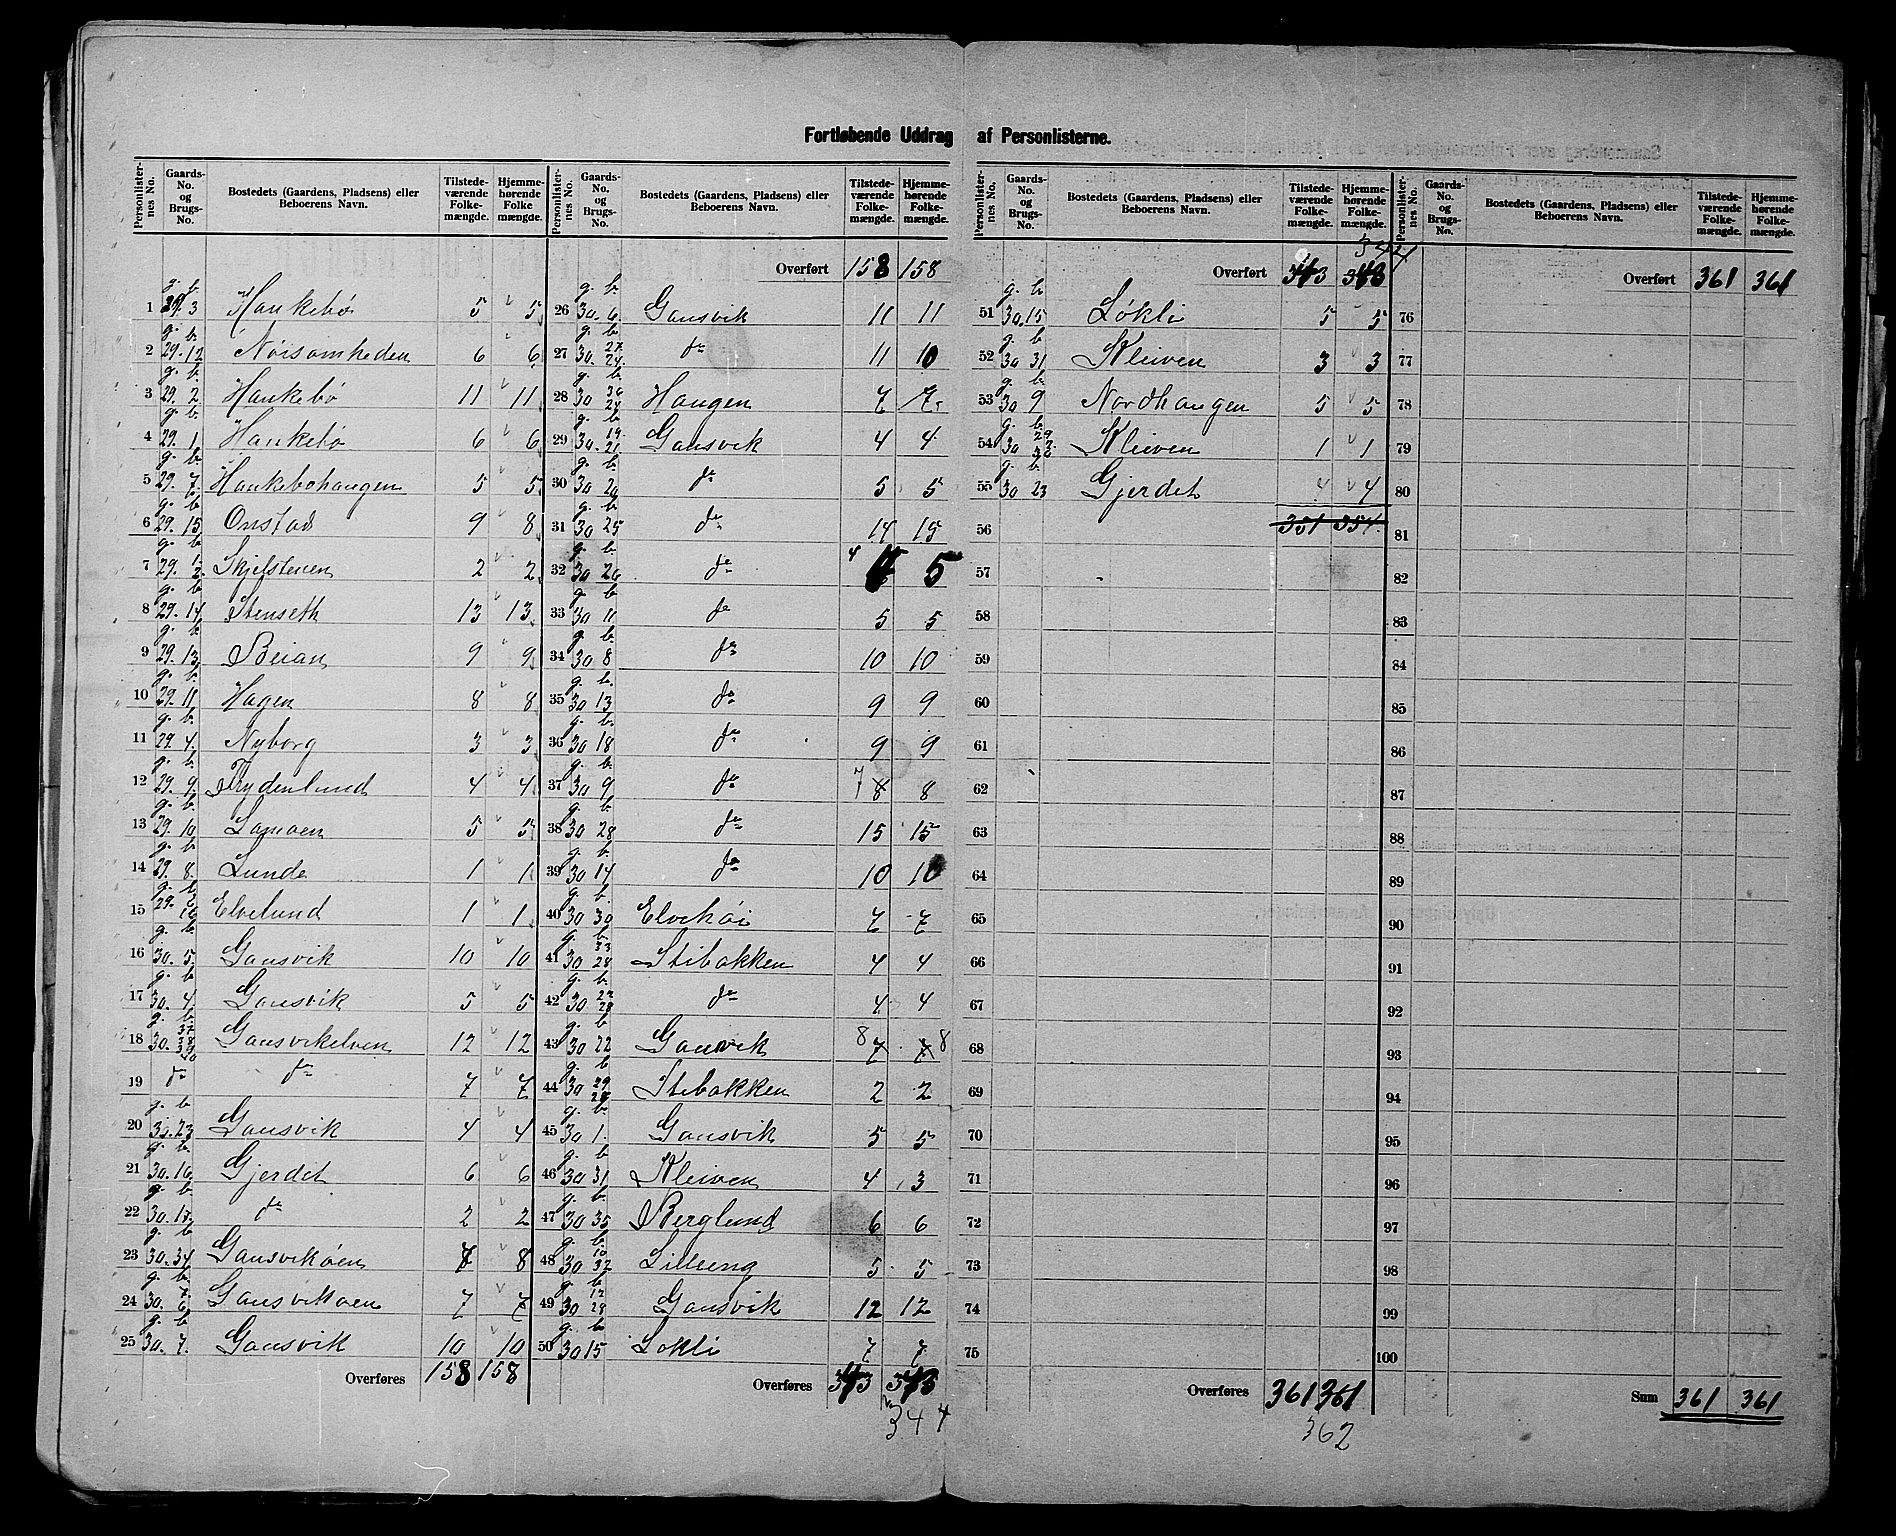 Fortløbende Uddrag af Personlisterne.
Personlister-nes No. Gaards-No. og Brugs-No. Bostedets (Gaardens, Pladsens) eller Beboerens Navn. Tilstede-værende Folke-mængde. Hjemme-hørende Folke mængde.
1 g. b. 29. 3 Haukebø 5 5
2 g. b. 29. 12 Nøisomheden 6 6
3 g. b. 29. 2 Haukebø 11 11
4 g. b. 29. 1 Haukebø 6 6
5 g. b. 29. 7. Haukebøhaugen 5 5
6 g. b. 29. 15 Onstad 9 8
7 g. b. 29. 1. 2. Skjelstenen 2 2
8 g. b. 29. 14 Stenseth 13 13
9 g. b. 29. 13 Beian 9 9
10 g. b. 29. 11 Hagen 8 8
11 g. b. 29. 4. Nyborg 3 3
12 g. b. 29. 9. Frydenlund 4 4
13 g. b. 29. 10 Lamoen 5 5
14 g. b. 29. 8. Lunde 1 1
15 g. b. 29. 6 16 Elvelund 1 1
16 g. b. 30. 5. Gansvik 10 10
17 g. b. 30. 4. Gansvik 5 5
18 g. b. 30. 37 38 Gansvikelven 12 12
19 do do 7 7
20 g. b. 30. 23 Gansvik 4 4
21 g. b. 30. 16 Gjerdet 6 6
22 g. b. 30. 17. do 2 2
23 g. b. 30. 34 Gansvikøen 8 8
24 g. b. 30. 7. 6 Gansvikøen 7 7
25 g. b. 30. 7. Gansvik 10 10
Overføres 158 158
Personlister-nes No. Gaards-No. og Brugs-No. Bostedets (Gaardens, Pladsens) eller Beboerens Navn. Tilstede-værende Folke-mængde. Hjemme-hørende Folke-mængde.
Overført 158 158
26 g. b. 30. 6 Gansvik 11 11
27 g. b. 30. 27 24 do 11 10
28 g. b. 30 36 24 Haugen 7 7
29 g. b. 30. 19 21 Gansvik 4 4
30 g. b. 30 20 do 5 5
31 g. b. 30 25 do 14 15
32 g. b. 30 26 do 4 5
33 g. b. 30 11 do 5 5
34 g. b. 30 8 do 10 10
35 g. b. 30 13 do 9 9
36 g. b. 30 18 do 9 9
37 g. b. 30 9 do 7 8 8
38 g. b. 30 28 do 15 15
39 g. b. 30 14 do 10 10
40 g. b. 30 30 Elvekøi 7 7
41 g. b. 30 33 28 Stibakken 4 4
42 g. b. 30 22 28 do 4 4
43 g. b. 30 22 Gansvik 8 7 7 8
44 g. b. 30 29 28 Stibakken 2 2
45 g. b. 30 1. Gansvik 5 5
46 g. b. 30 31 Kleiven 4 3
47 g. b. 30 35 Berglund 6 6
48 g. b. 30 10 32 Lilleeng 5 5
49 g. b. 30 12 28 Gansvik 12 12
50 g. b. 30 15 Løkli 7 7
Overføres 343 343
344
Personlister-nes No. Gaards-No. og Brugs-No. Bostedets (Gaardens, Pladsens) eller Beboerens Navn. Tilstede-værende Folke-mængde. Hjemme-hørende Folke-mængde.
344
Overført 343 343
51 g. b 30. 15 Løkli 5 5
52 g. b 30 31 Kleiven 3 3
53 g. b. 30 9 Nordhaugen 5 5
54 g. b. 30 29 Kleiven 1 1
55 g. b. 30 23 Gjerdet 4 4
56 351 354
57
58
59
60
61
62
63
64
65
66
67
68
69
70
71
72
73
74
75
Overføres 361 361
362
Personlister-nes No. Gaards-No. og Brugs-No. Bostedets (Gaardens, Pladsens) eller Beboerens Navn. Tilstede-værende Folke-mængde. Hjemme-hørende Folke-mængde.
Overført 361 361
76
77
78
79
80
81
82
83
84
85
86
87
88
89
90
91
92
93
94
95
96
97
98
99
100
Sum 361 361